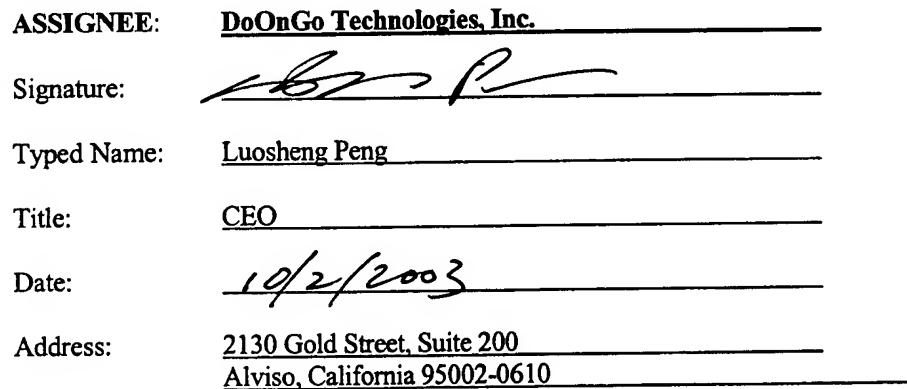 ASSIGNEE: DoOnGo Technologies, Inc.
Signature:
Typed Name: Luosheng Peng
Title: CEO
Date: 10/2/2003
Address: 2130 Gold Street, Suite 200
Alviso, California 95002-0610